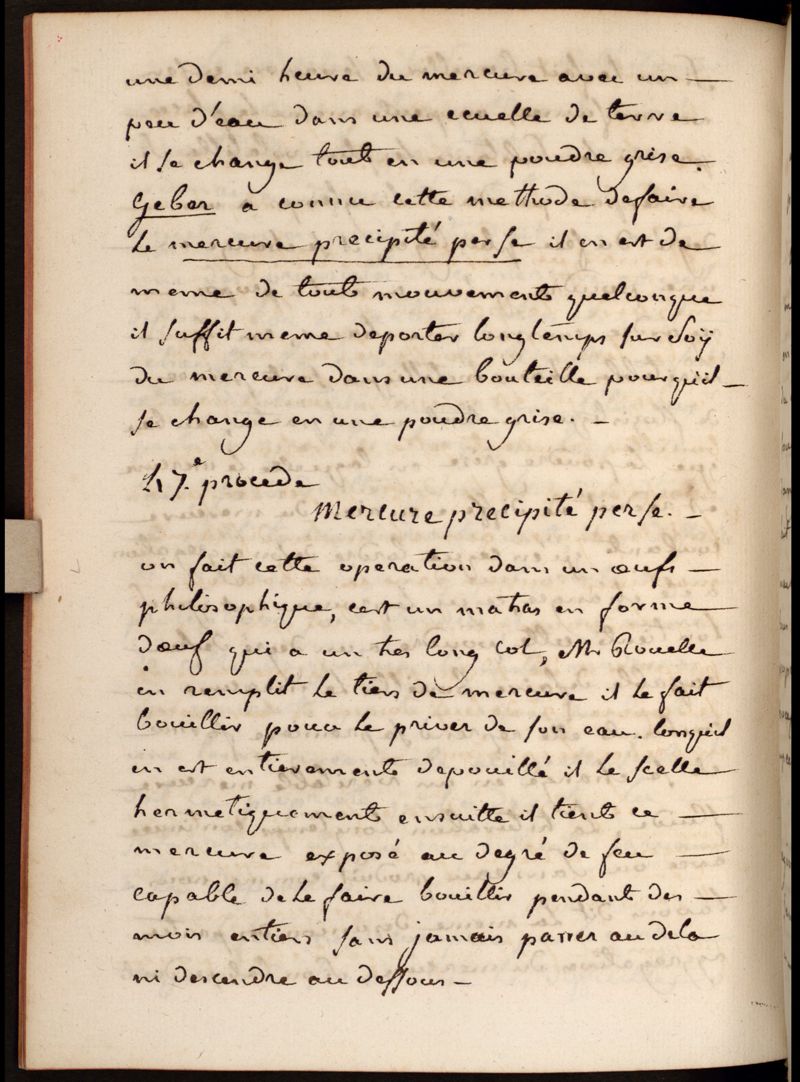 une demi heure du mercure avec un —
peu d'eau dans une ecuelle de terre
il se change tout en une poudre grise.
Geber a connu cette methode de faire
le mercure precipité per se il en est de
meme de touts mouvements quelconque
il suffit meme de porter longtemps sur soÿ
du mercure dans une bouteille pour qu'il —
se change en une poudre grise. —
47.e procede
Mercure precipité per se. —
on fait cette operation dans un œufs —
philosophique, c'est un matras en forme
d'œuf qui a un tres long col, Mr Rouelle
en remplit le tiers de mercure il le fait
bouillir pour le priver de son eau. lorsqu'il
en est entierements depouillé il le scelle
hermetiquements ensuitte il tients ce —
mercure exposé au degré de feu —
capable de le faire bouillir pendant des —
mois entiers sans jamais passer au dela
ni descendre au dessous —